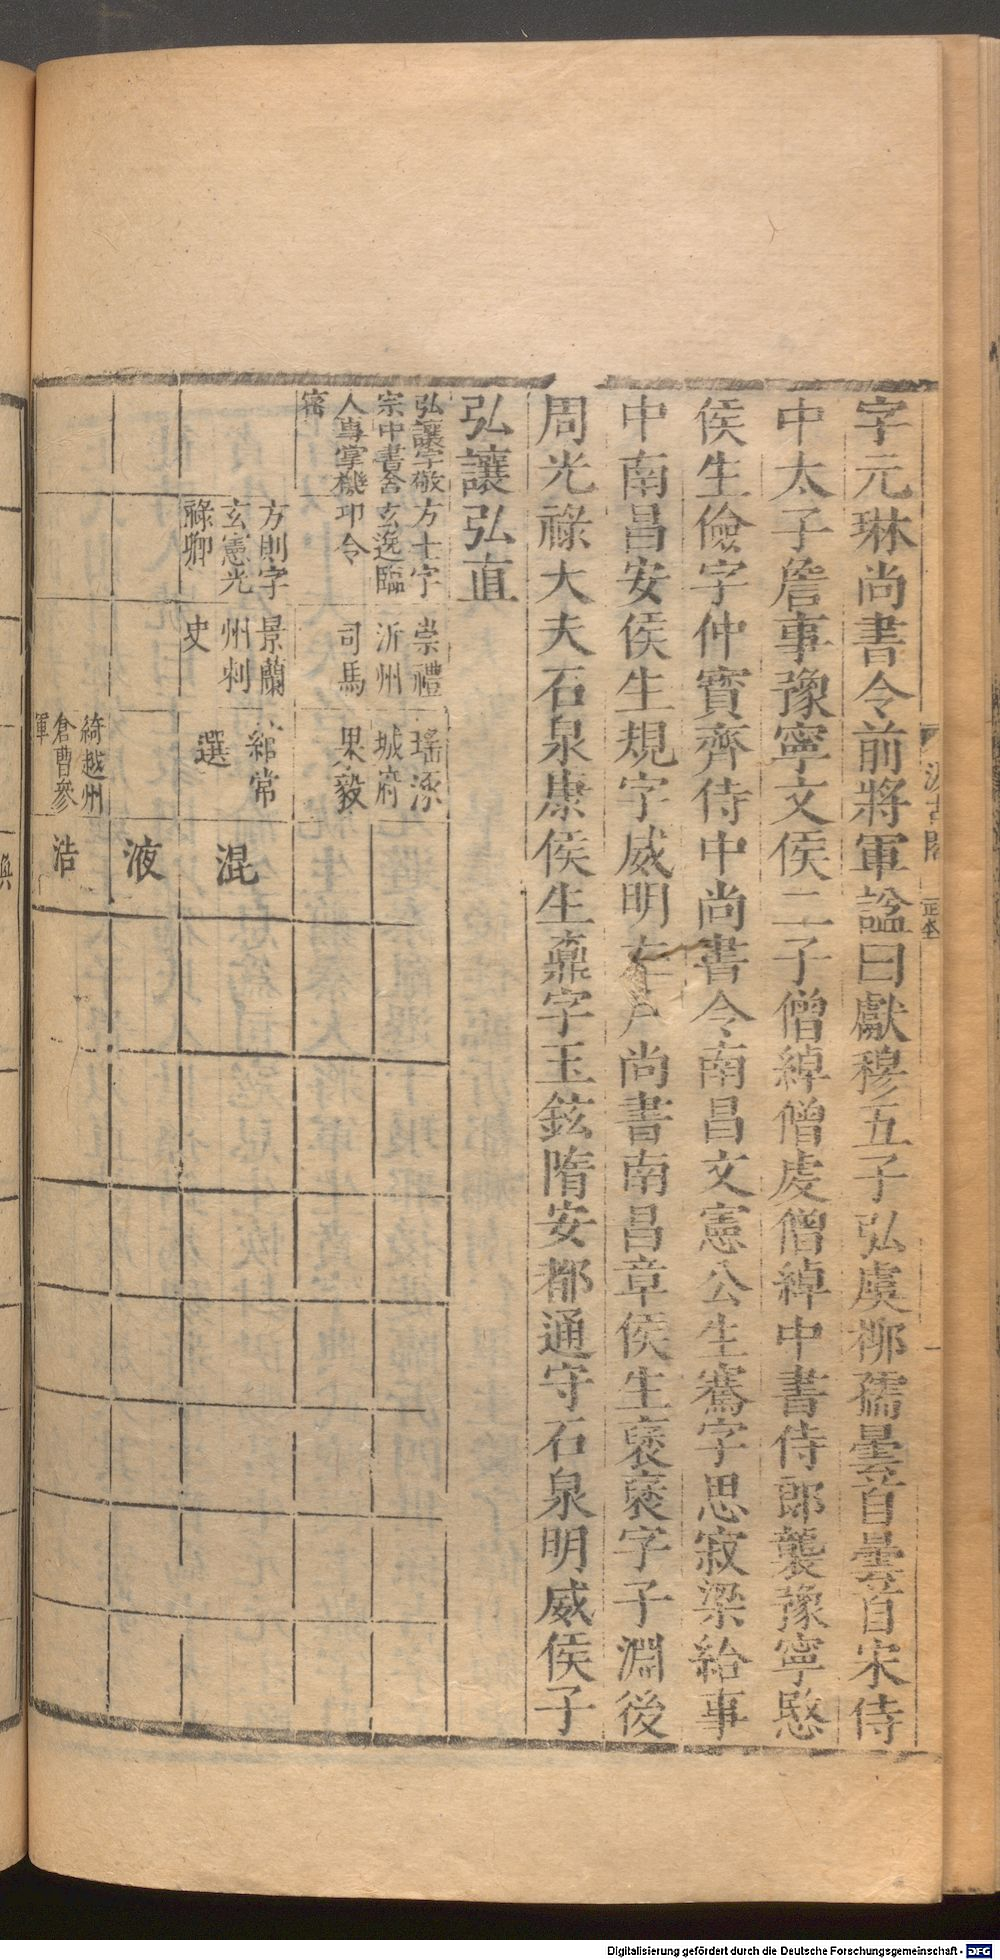 字元琳尚書令前將軍諡曰獻穆五子弘虞柳孺曇首曇首宋侍
中太子詹事豫寧文侯二子僧綽僧虔僧綽中書侍郎襲豫寧愍
侯生儉字仲寶齊侍中尚書令南昌文憲公生騫字思寂梁給事
中南昌安侯生規字威明左戶尚書南昌章侯生褒褒字子淵後
周光祿大夫石泉康侯生鼒字玉鉉隋安都通守石泉明威侯子
弘讓弘直
弘讓字敬
宗中書舍
人專掌機
密
方士字
玄逸臨
卭令
崇禮
沂州
司馬
瑤涿
城府
果毅
方則字
玄憲光
祿卿
景蘭
州刺
史
綰常
選
混
液
綺越州
倉曹參
軍
浩
汲古閣
正本
Digitalisierung gefördert durch die Deutsche Forschungsgemeinschaft - DFG